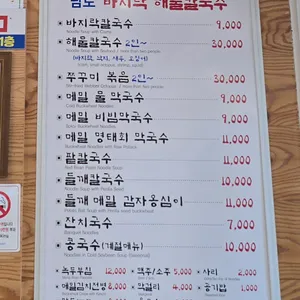 남도 바지락 해물칼국수
바지락칼국수 9,000
Noodle Soup with Clams
해물칼국수 2인~ 30,000
(바지락, 낙지, 새우, 오징어)
쭈꾸미 볶음 2인~ 30,000
메밀 물 막국수 9,000
Cold Buckwheat Noodles
메밀 비빔막국수 9,000
Spicy Buckwheat Noodles
메밀 명태회 막국수 11,000
팥칼국수 11,000
들깨칼국수 10,000
Noodle Soup with Perilla Seeds
들깨 메밀 감자옹심이 11,000
잔치국수 7,000
Banquet Noodles
콩국수 (계절메뉴) 10,000
Noodles in Cold Soybean Soup (Seasonal)
녹두부침 12,000
맥주/소주 5,000
사리 2,000
메밀김치전병 8,000
막걸리 4,000
공기밥 1,000
1층